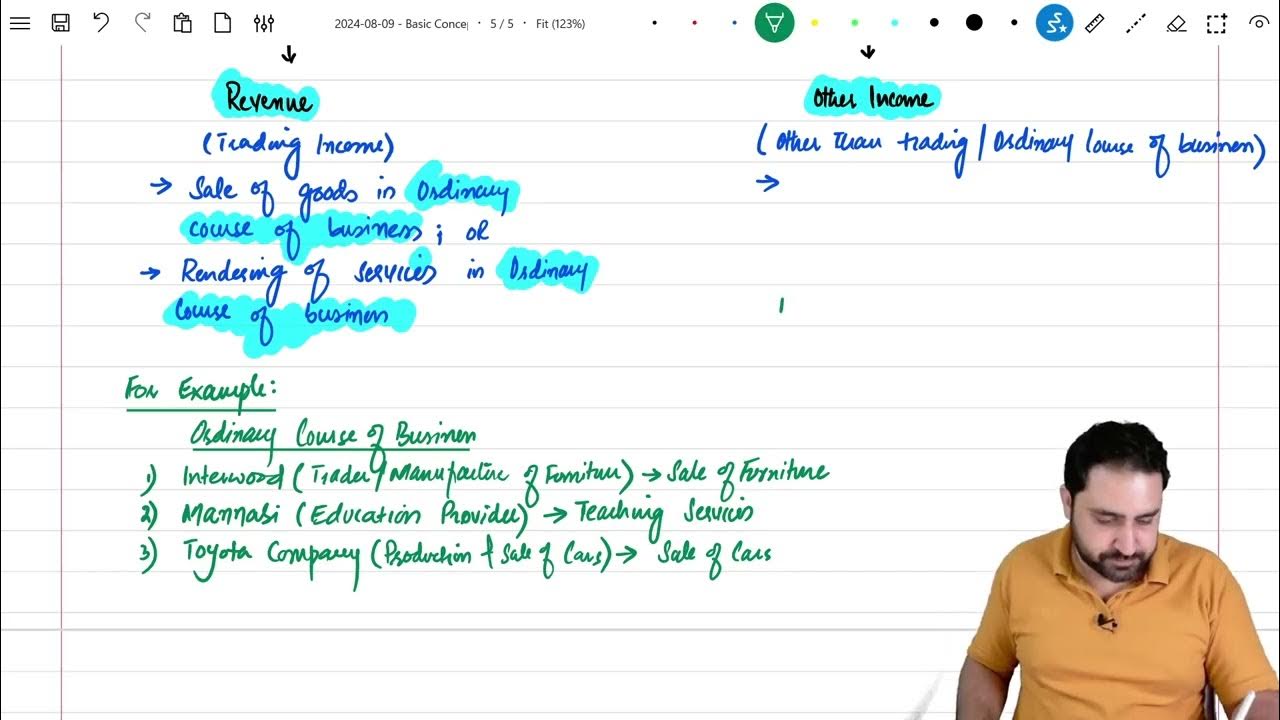 2024-08-09 - Basic Concep · 5 / 5 · Fit (123%)
Revenue
(Trading Income)
→ Sale of goods in Ordinary
course of business ; OR
→ Rendering of services in Ordinary
Course of business
Other Income
(Other Than trading / Ordinary Course of business)
→
For Example:
Ordinary Course of Business
1) Interwood (Trader / Manufacture of Furniture) → Sale of Furniture
2) Mannabi (Education Provider) → Teaching Services
3) Toyota Company (Production & Sale of Cars) → Sale of Cars